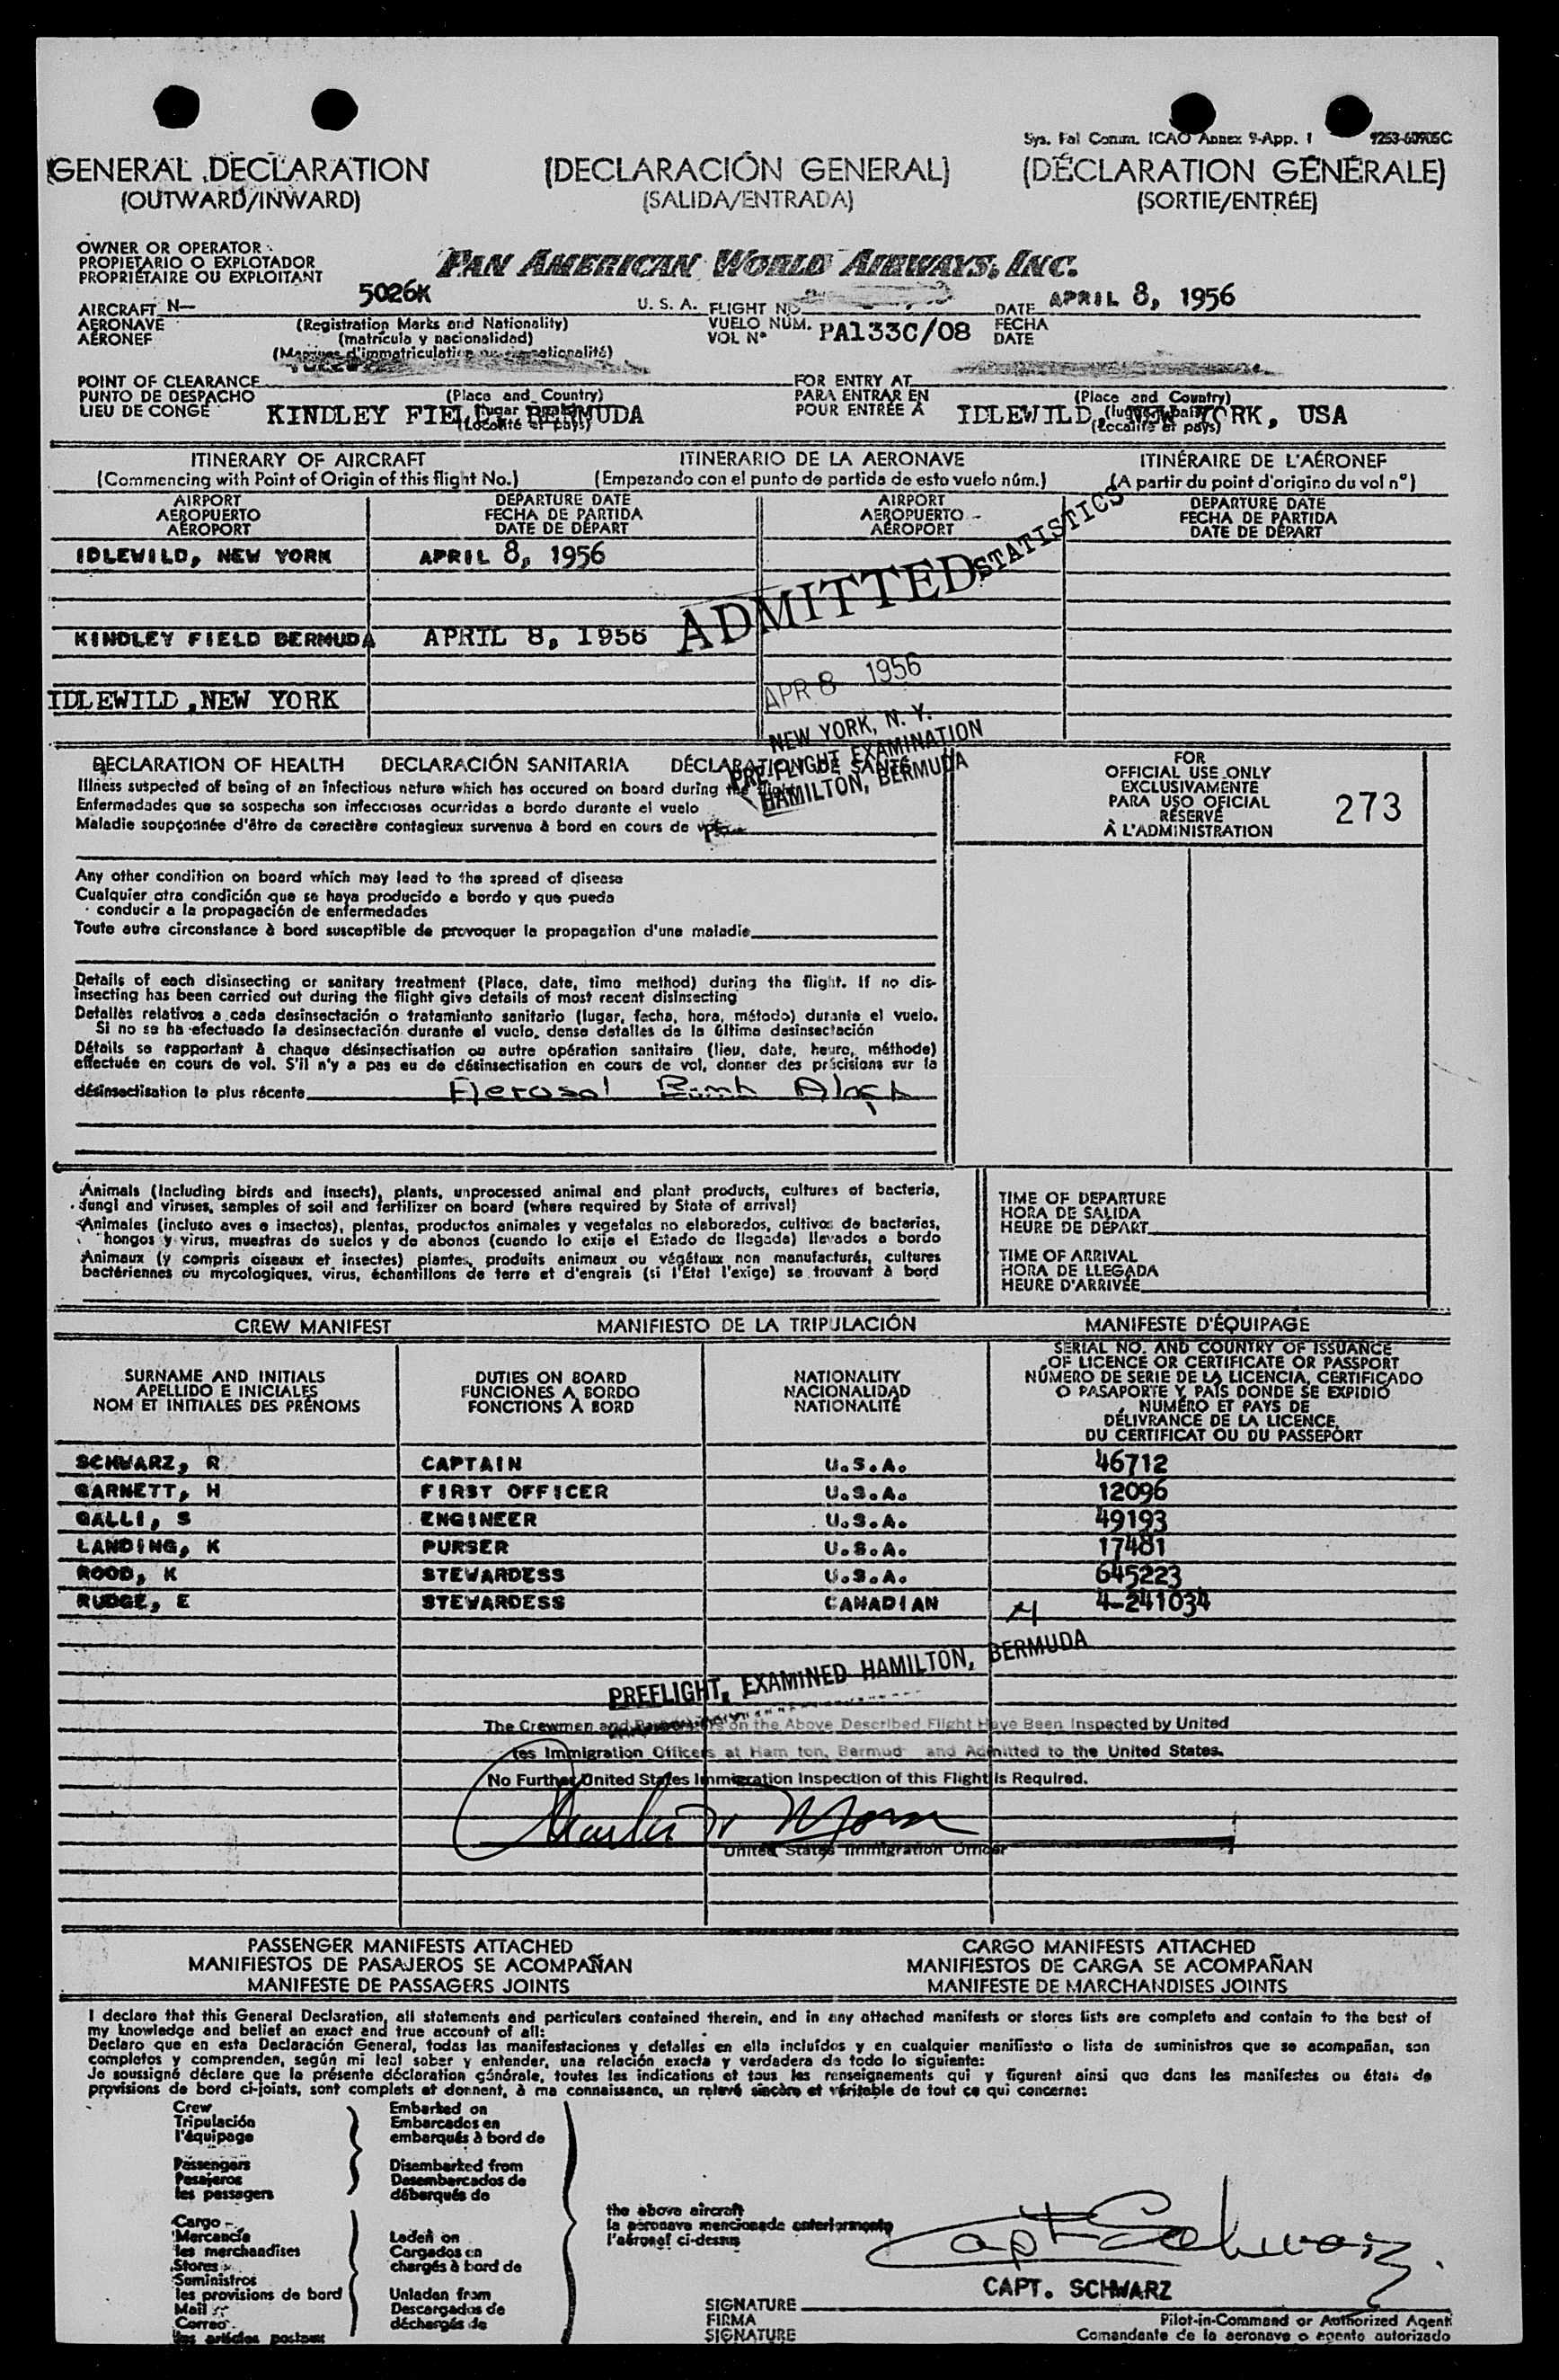 Sys. Fal Comm. ICAO Annex 9-App. 1
GENERAL DECLARATION
(OUTWARD/INWARD)
(DECLARACIÓN GENERAL)
(SALIDA/ENTRADA)
(DÉCLARATION GÉNÉRALE)
(SORTIE/ENTRÉE)
OWNER OR OPERATOR
PROPIETARIO O EXPLOTADOR
PROPRIÉTAIRE OU EXPLOITANT
PAN AMERICAN WORLD AIRWAYS, INC.
AIRCRAFT N- 5026K U. S. A.
AERONAVE
AÉRONEF
(Registration Marks and Nationality)
(matrícula y nacionalidad)
FLIGHT NO.
VUELO NÚM.
VOL Nº
PA133C/08
DATE APRIL 8, 1956
FECHA
DATE
POINT OF CLEARANCE
PUNTO DE DESPACHO
LIEU DE CONGÉ
(Place and Country)
KINDLEY FIELD, BERMUDA
FOR ENTRY AT
PARA ENTRAR EN
POUR ENTRÉE À
(Place and Country)
IDLEWILD, NEW YORK, USA
ITINERARY OF AIRCRAFT
(Commencing with Point of Origin of this flight No.)
ITINERARIO DE LA AERONAVE
(Empezando con el punto de partida de esto vuelo núm.)
ITINÉRAIRE DE L'AÉRONEF
(A partir du point d'origine du vol nº)
AIRPORT
AEROPUERTO
AÉROPORT
DEPARTURE DATE
FECHA DE PARTIDA
DATE DE DÉPART
AIRPORT
AEROPUERTO
AÉROPORT
DEPARTURE DATE
FECHA DE PARTIDA
DATE DE DÉPART
IDLEWILD, NEW YORK APRIL 8, 1956
KINDLEY FIELD BERMUDA APRIL 8, 1956
IDLEWILD, NEW YORK
ADMITTED STATISTICS
APR 8 1956
NEW YORK, N. Y.
PRE-FLIGHT EXAMINATION
HAMILTON, BERMUDA
DECLARATION OF HEALTH DECLARACIÓN SANITARIA DÉCLARATION DE SANTÉ
Illness suspected of being of an infectious nature which has occured on board during the flight
Enfermedades que se sospecha son infecciosas ocurridas a bordo durante el vuelo
Maladie soupçonnée d'être de caractère contagieux survenue à bord en cours de vol
FOR
OFFICIAL USE ONLY
EXCLUSIVAMENTE
PARA USO OFICIAL
RÉSERVÉ
À L'ADMINISTRATION
273
Any other condition on board which may lead to the spread of disease
Cualquier otra condición que se haya producido a bordo y que pueda
conducir a la propagación de enfermedades
Toute autre circonstance à bord susceptible de provoquer la propagation d'une maladie
Details of each disinsecting or sanitary treatment (Place, date, time method) during the flight. If no dis-
insecting has been carried out during the flight give details of most recent disinsecting
Detalles relativos a cada desinsectación o tratamiento sanitario (lugar, fecha, hora, método) durante el vuelo.
Si no se ha efectuado la desinsectación durante el vuelo, dense detalles de la última desinsectación
Détails se rapportant à chaque désinsectisation ou autre opération sanitaire (lieu, date, heure, méthode)
effectuée en cours de vol. S'il n'y a pas eu de désinsectisation en cours de vol, donner des précisions sur la
désinsectisation la plus récente Aerosol Bomb
Animals (Including birds and insects), plants, unprocessed animal and plant products, cultures of bacteria,
fungi and viruses, samples of soil and fertilizer on board (where required by State of arrival)
Animales (incluso aves e insectos), plantas, productos animales y vegetales no elaborados, cultivos de bacterias,
hongos y virus, muestras de suelos y de abonos (cuando lo exija el Estado de llegada) llevados a bordo
Animaux (y compris oiseaux et insectes) plantes, produits animaux ou végétaux non manufacturés, cultures
bactériennes ou mycologiques, virus, échantillons de terre et d'engrais (si l'Etat l'exige) se trouvant à bord
TIME OF DEPARTURE
HORA DE SALIDA
HEURE DE DÉPART
TIME OF ARRIVAL
HORA DE LLEGADA
HEURE D'ARRIVÉE
CREW MANIFEST MANIFIESTO DE LA TRIPULACIÓN MANIFESTE D'ÉQUIPAGE
SURNAME AND INITIALS
APELLIDO E INICIALES
NOM ET INITIALES DES PRÉNOMS
DUTIES ON BOARD
FUNCIONES A BORDO
FONCTIONS À BORD
NATIONALITY
NACIONALIDAD
NATIONALITÉ
SERIAL NO. AND COUNTRY OF ISSUANCE
OF LICENCE OR CERTIFICATE OR PASSPORT
NÚMERO DE SERIE DE LA LICENCIA, CERTIFICADO
O PASAPORTE Y PAÍS DONDE SE EXPIDIÓ
NUMÉRO ET PAYS DE
DÉLIVRANCE DE LA LICENCE,
DU CERTIFICAT OU DU PASSEPORT
SCHWARZ, R CAPTAIN U.S.A. 46712
GARNETT, H FIRST OFFICER U.S.A. 12096
GALLI, S ENGINEER U.S.A. 49193
LANDING, K PURSER U.S.A. 17481
ROOD, K STEWARDESS U.S.A. 645223
RUDGE, E STEWARDESS CANADIAN 4-241034
PREFLIGHT, EXAMINED HAMILTON, BERMUDA
The Crewmen and Passengers on the Above Described Flight Have Been Inspected by United
States Immigration Officers at Hamilton, Bermuda and Admitted to the United States.
No Further United States Immigration Inspection of this Flight is Required.
United States Immigration Officer
PASSENGER MANIFESTS ATTACHED
MANIFIESTOS DE PASAJEROS SE ACOMPAÑAN
MANIFESTE DE PASSAGERS JOINTS
CARGO MANIFESTS ATTACHED
MANIFIESTOS DE CARGA SE ACOMPAÑAN
MANIFESTE DE MARCHANDISES JOINTS
I declare that this General Declaration, all statements and particulars contained therein, and in any attached manifests or stores lists are complete and contain to the best of
my knowledge and belief an exact and true account of all:
Declaro que en esta Declaración General, todas las manifestaciones y detalles en ella incluídos y en cualquier manifiesto o lista de suministros que se acompañan, son
completos y comprenden, según mi leal saber y entender, una relación exacta y verdadera de todo lo siguiente:
Je soussigné déclare que la présente déclaration générale, toutes les indications et tous les renseignements qui y figurent ainsi que dans les manifestes ou états de
provisions de bord ci-joints, sont complets et donnent, à ma connaissance, un relevé sincère et véritable de tout ce qui concerne:
Crew
Tripulación
l'équipage
Passengers
Pasajeros
les passagers
Cargo
Mercancía
les marchandises
Stores
Suministros
les provisions de bord
Mail
Correo
les articles postaux
Embarked on
Embarcados en
embarqués à bord de
Disembarked from
Desembarcados de
débarqués de
Laden on
Cargados en
chargés à bord de
Unladen from
Descargados de
déchargés de
the above aircraft
la aeronave mencionada anteriormente
l'aéronef ci-dessus
Capt Schwarz
CAPT. SCHWARZ
SIGNATURE
FIRMA
SIGNATURE
Pilot-in-Command or Authorized Agent
Comandante de la aeronave o agente autorizado